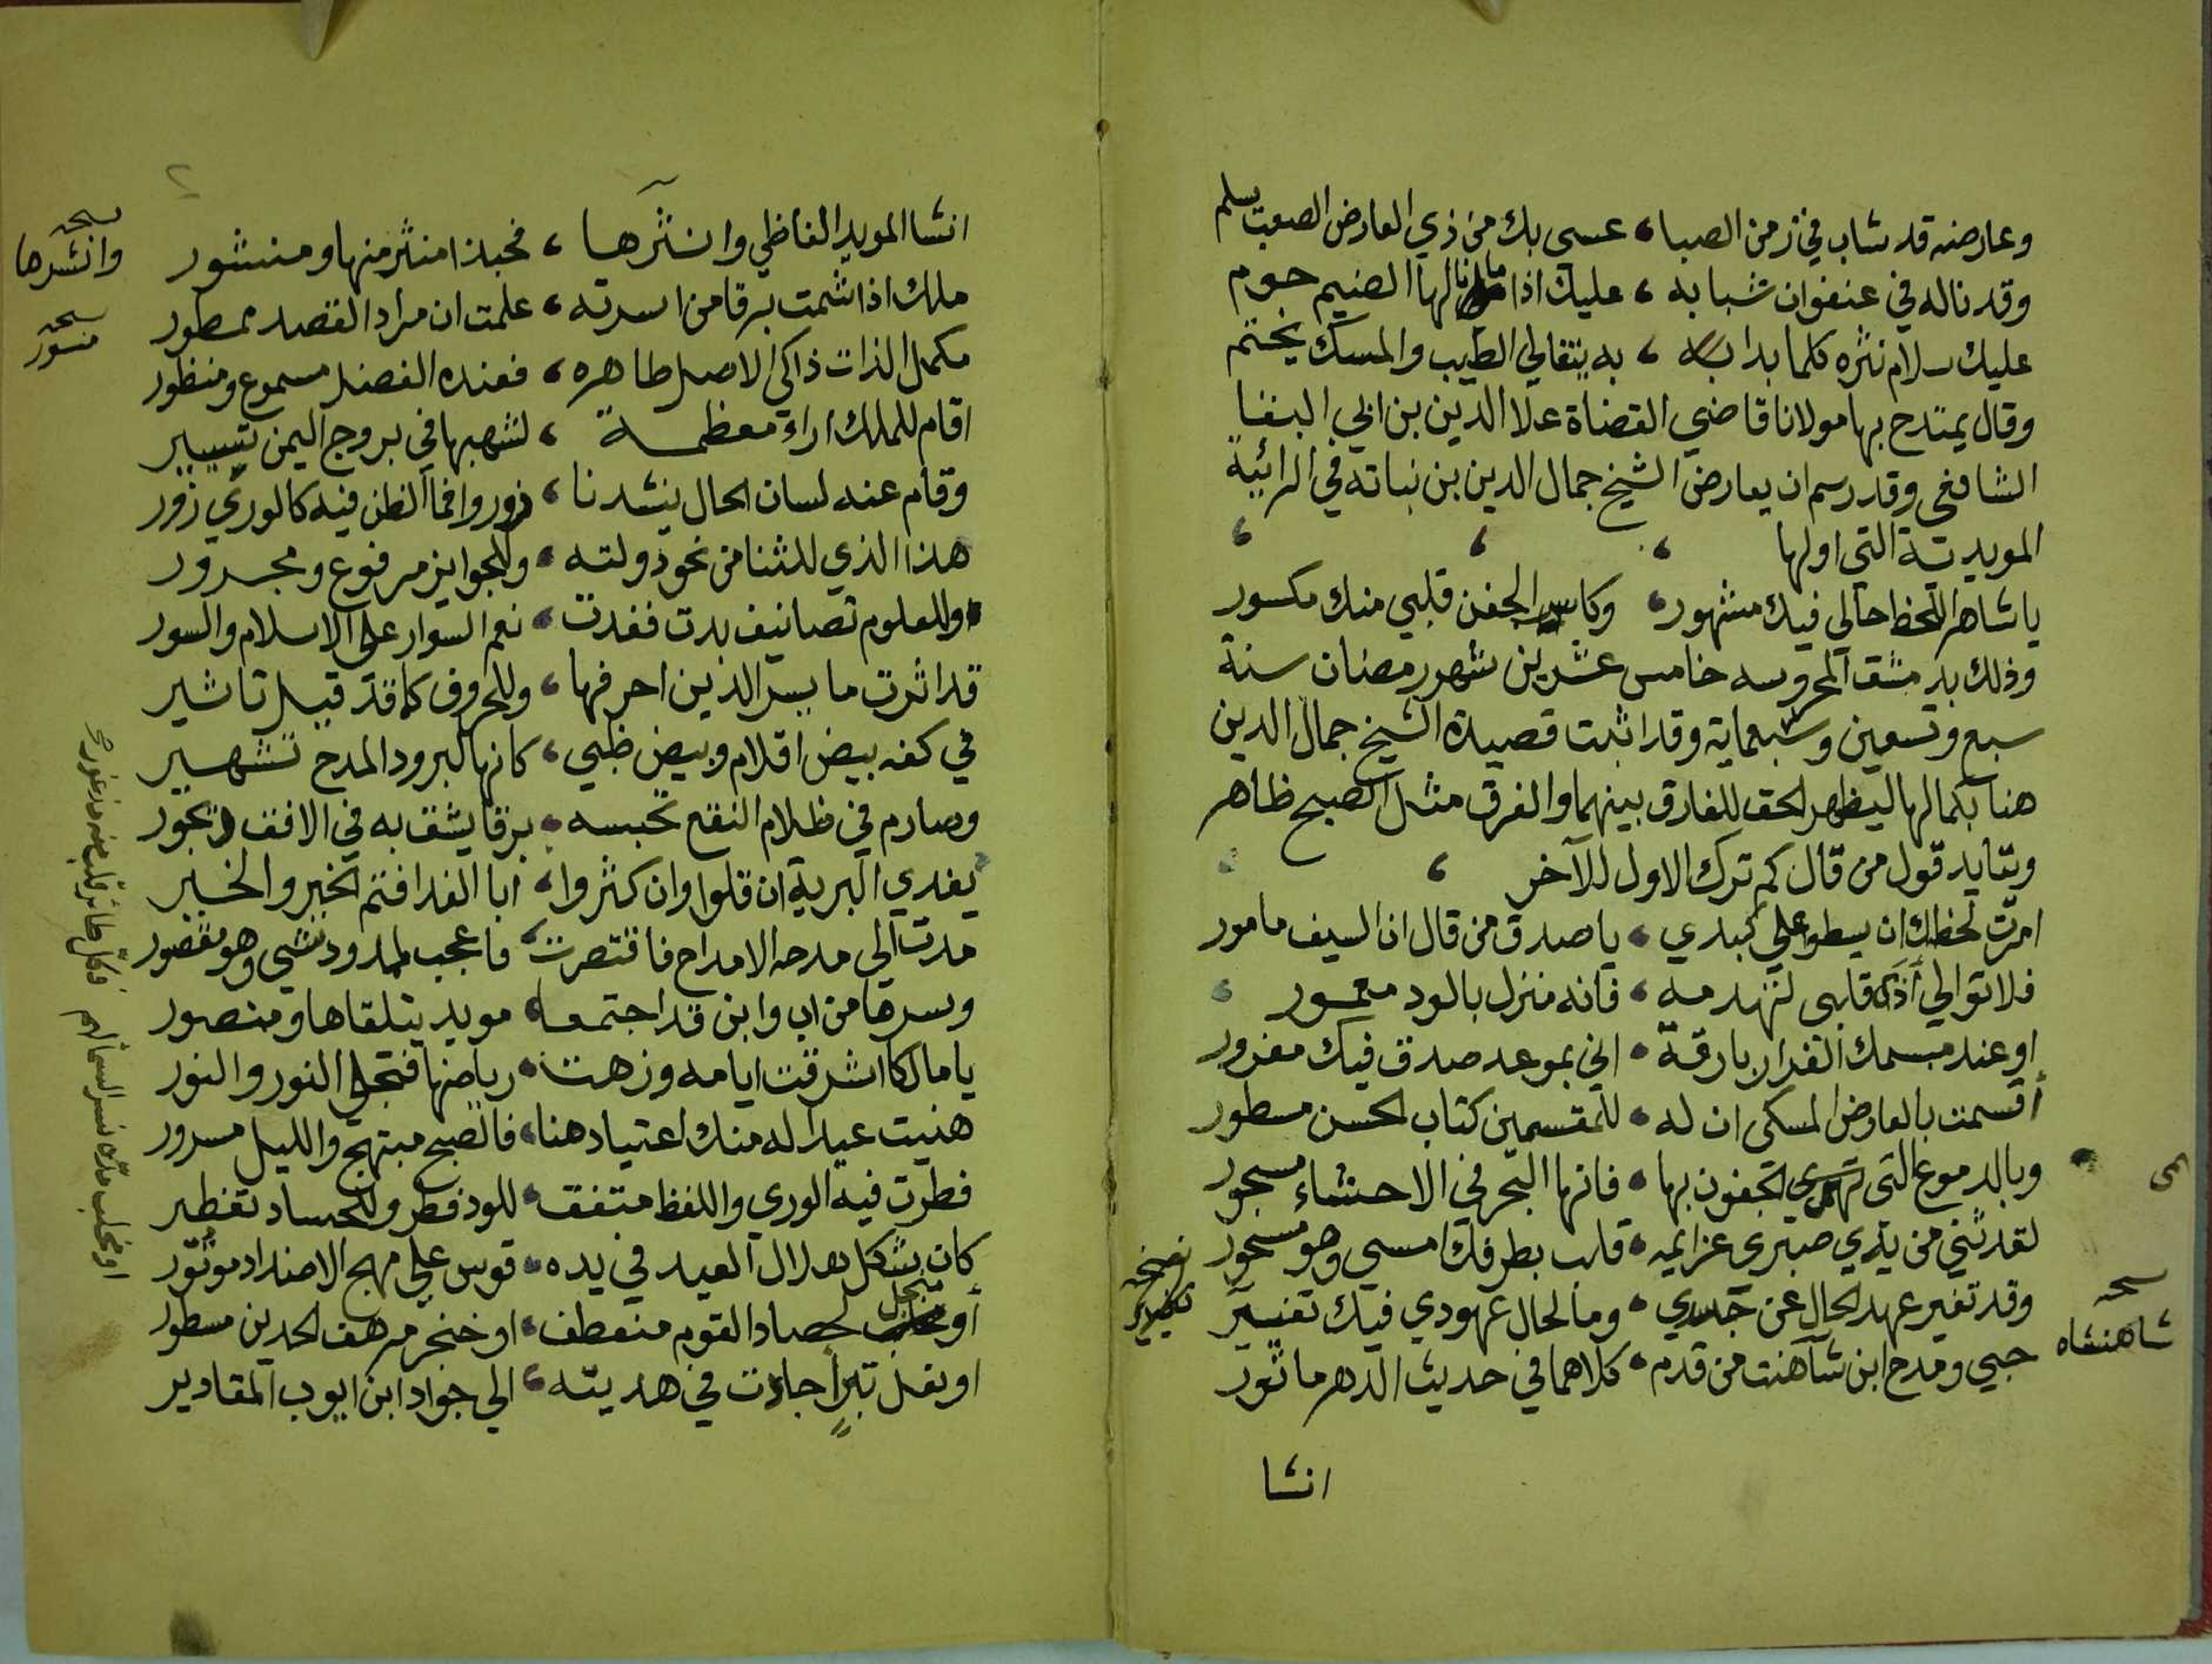 وعارضه قد شاب في زمن الصبا، عسى بك من ذي العارض الصعب يسلم
وقد ناله في عنفوان شبابه، عليك اذا ما نالها الضيم حوم
عليك سلام نثره كلما بدا به، به يتغالى الطيب والمسك يختم
وقال يمتدح بها مولانا قاضي القضاة علا الدين بن ابي البقا
الشافعى وقد رسم ان يعارض الشيخ جمال الدين بن نباته في الرائية
المويدية التي اولها
يا شاهر اللحظ حالي فيك مشهور، وكاسر الجفن قلبي منك مكسور
وذلك بدمشق المحروسه خامس عشرين شهور رمضان سنة
سبع وتسعين وسبعماية وقد اثبت قصيدة الشيخ جمال الدين
هنا بكمالها ليظهر الحق للفارق بينهما والفرق مثل الصبح ظاهر
ويتايد قول من قال كم ترك الاول للآخر
امرت لحظك ان يسطو على كبدي، يا صدق من قال ان السيف مامور
فلا توالي أذى قلبى لتهدمه، فانه منزل بالود معمور
او عند مبسمك الغدار بارقة، اني بموعد صدق فيك مغرور
أقسمت بالعارض المسكى ان له، للمقسمين كتاب الحسن مسطور
وبالدموع التى تهدي الجفون بها، فانها البحر في الاحشاء مسجور
لقد ثنى من يدي صبرى عزايمه، قلب بطرفك امسى وهو مسحور
وقد تغير عهد الحال عن جسدي، وما لحال عهودي فيك تغيير
حبي ومدح ابن شاهنت من قدم، كلاهما في حديث الدهر ماثور
نسخه
شاهنشاه
انشا
انشا المويد الفاظي وانشرها، فحبذا منثر منها ومنشور
ملك اذا شمت برقا من اسرته، علمت ان مراد القصد ممطور
مكمل الذات ذاكى الاصل طاهره، فعنده الفضل مسموع ومنظور
اقام للملك اراء معظمة، لشهبها في بروج اليمن تسيير
وقام عنه لسان الحال ينشدنا، زوروا فما الظن فيه كالوري زور
هذا الذي للثنا من نحو دولته، وللجوايز مرفوع ومجرور
وللعلوم تصانيف بدت فغدت، نعم السوار على الاسلام والسور
قد اثرت ما يسر الدين احرفها، وللحروف كما قد قيل تاثير
في كفه بيض اقلام وبيض ظبي، كانها لبرود المدح تشهير
وصارم في ظلام النقع تحبسه، برقا يشق به في الافق ديجور
يفدي البرية ان قلوا وان كثروا، ابا الفدا فتم الخبر والخير
مدت الي مدحه الامداح فاقتصرت، فاعجب لمدود نشي وهو مقصور
وسرها من اب وابن قد اجتمعا، مويد يتلقاها ومنصور
يا مالكا اشرقت ايامه وزهت، رياضها فتجلى النور والنور
هنيت عيدا له منك اعتياد هنا، فالصبح مبتهج والليل مسرور
فطرت فيه الوري واللفظ متفق، للود فطر وللحساد تفطير
كان بشكل هلال العيد في يده، قوس على مهج الاضداد موتور
أو منجل لحصاد القوم منعطف، او خنجر مرهف الحدين مسطور
او نعل تبر اجادت في هديته، الي جواد ابن ايوب المقادير
نسخه
وانشرها
نسخه
منشور